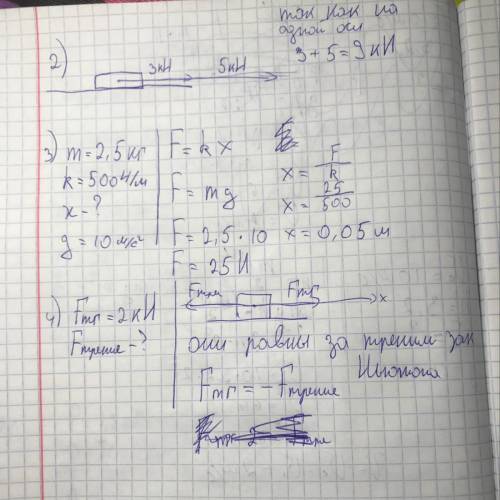 2)
так как на
одной оси
3 + 5 = 9 кН
3кН 5кН
3) m = 2,5 кг
k = 500 Н/м
x - ?
g = 10 м/с²
F = k x
F = mg
F = 2,5 · 10
F = 25 Н
x = F/k
x = 25/500
x = 0,05 м
4) Fтяг = 2 кН
Fтрение - ?
Fтрен Fтяг x
они равны за третим зак
Ньютона
Fтяг = - Fтрение